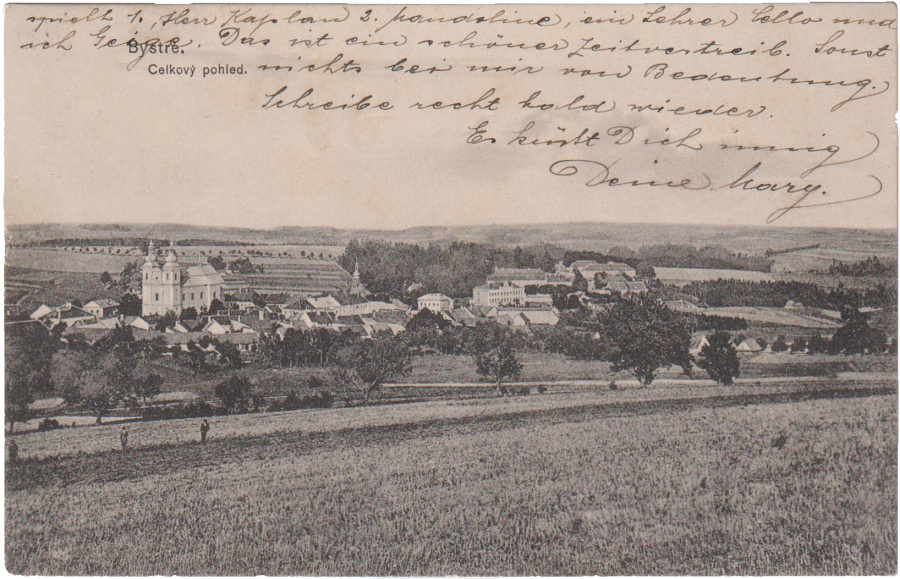 spielt 1. Herr Kaplan 2. Mandoline, ein Lehrer Cello und
ich Geige. Das ist ein schöner Zeitvertreib. Sonst
Bystré.
nichts bei mir von Bedeutung.
Celkový pohled.
Schreibe recht bald wieder.
Es küßt Dich innig
Deine Mary.